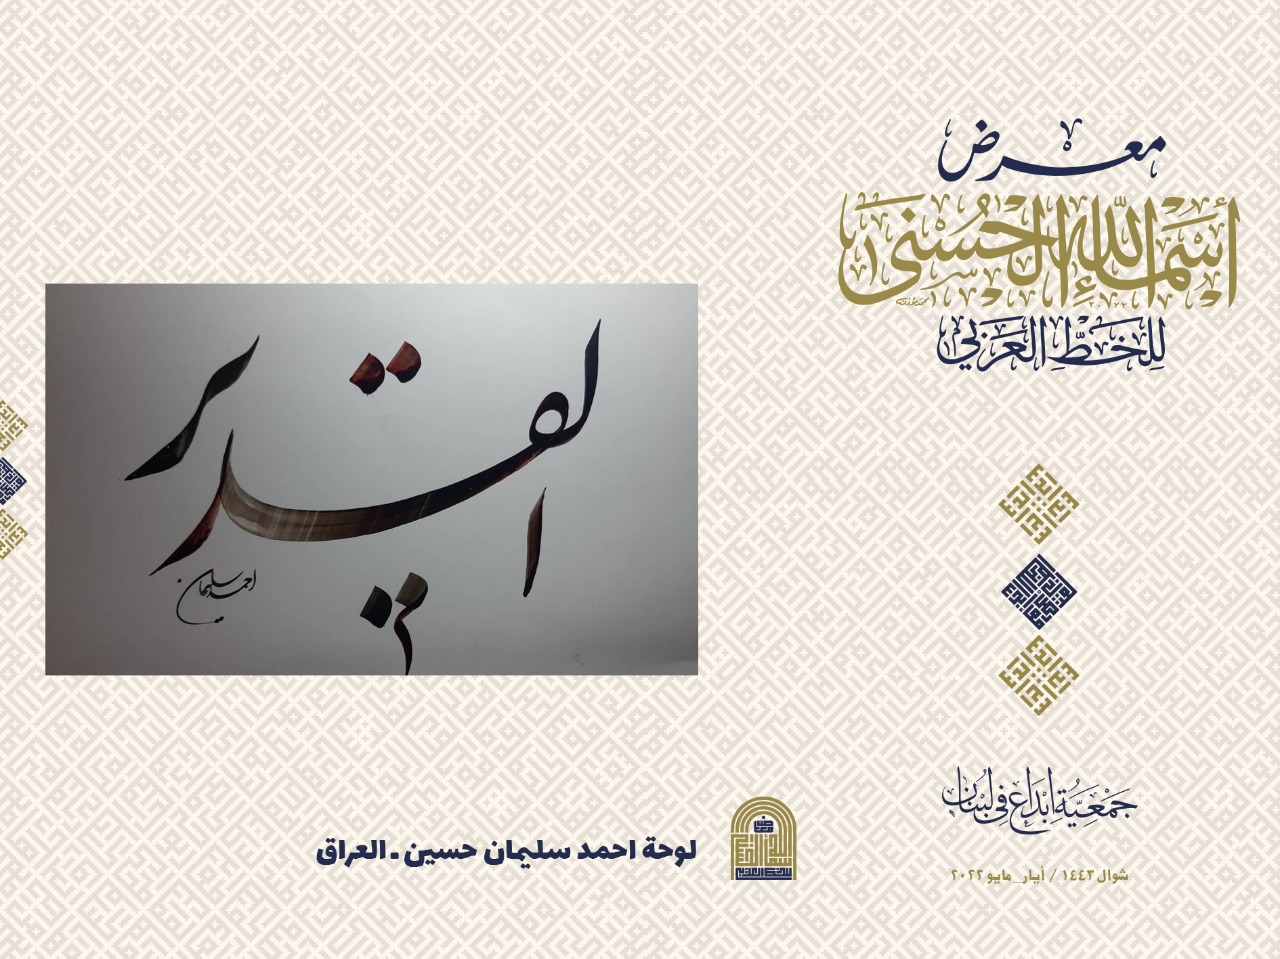 معرض
أسماء الله الحسنى
للخط العربي
القدير
احمد سليمان
جمعية إبداع في لبنان
شوال ١٤٤٣ / أيار_مايو ٢٠٢٢
لوحة احمد سليمان حسين ـ العراق